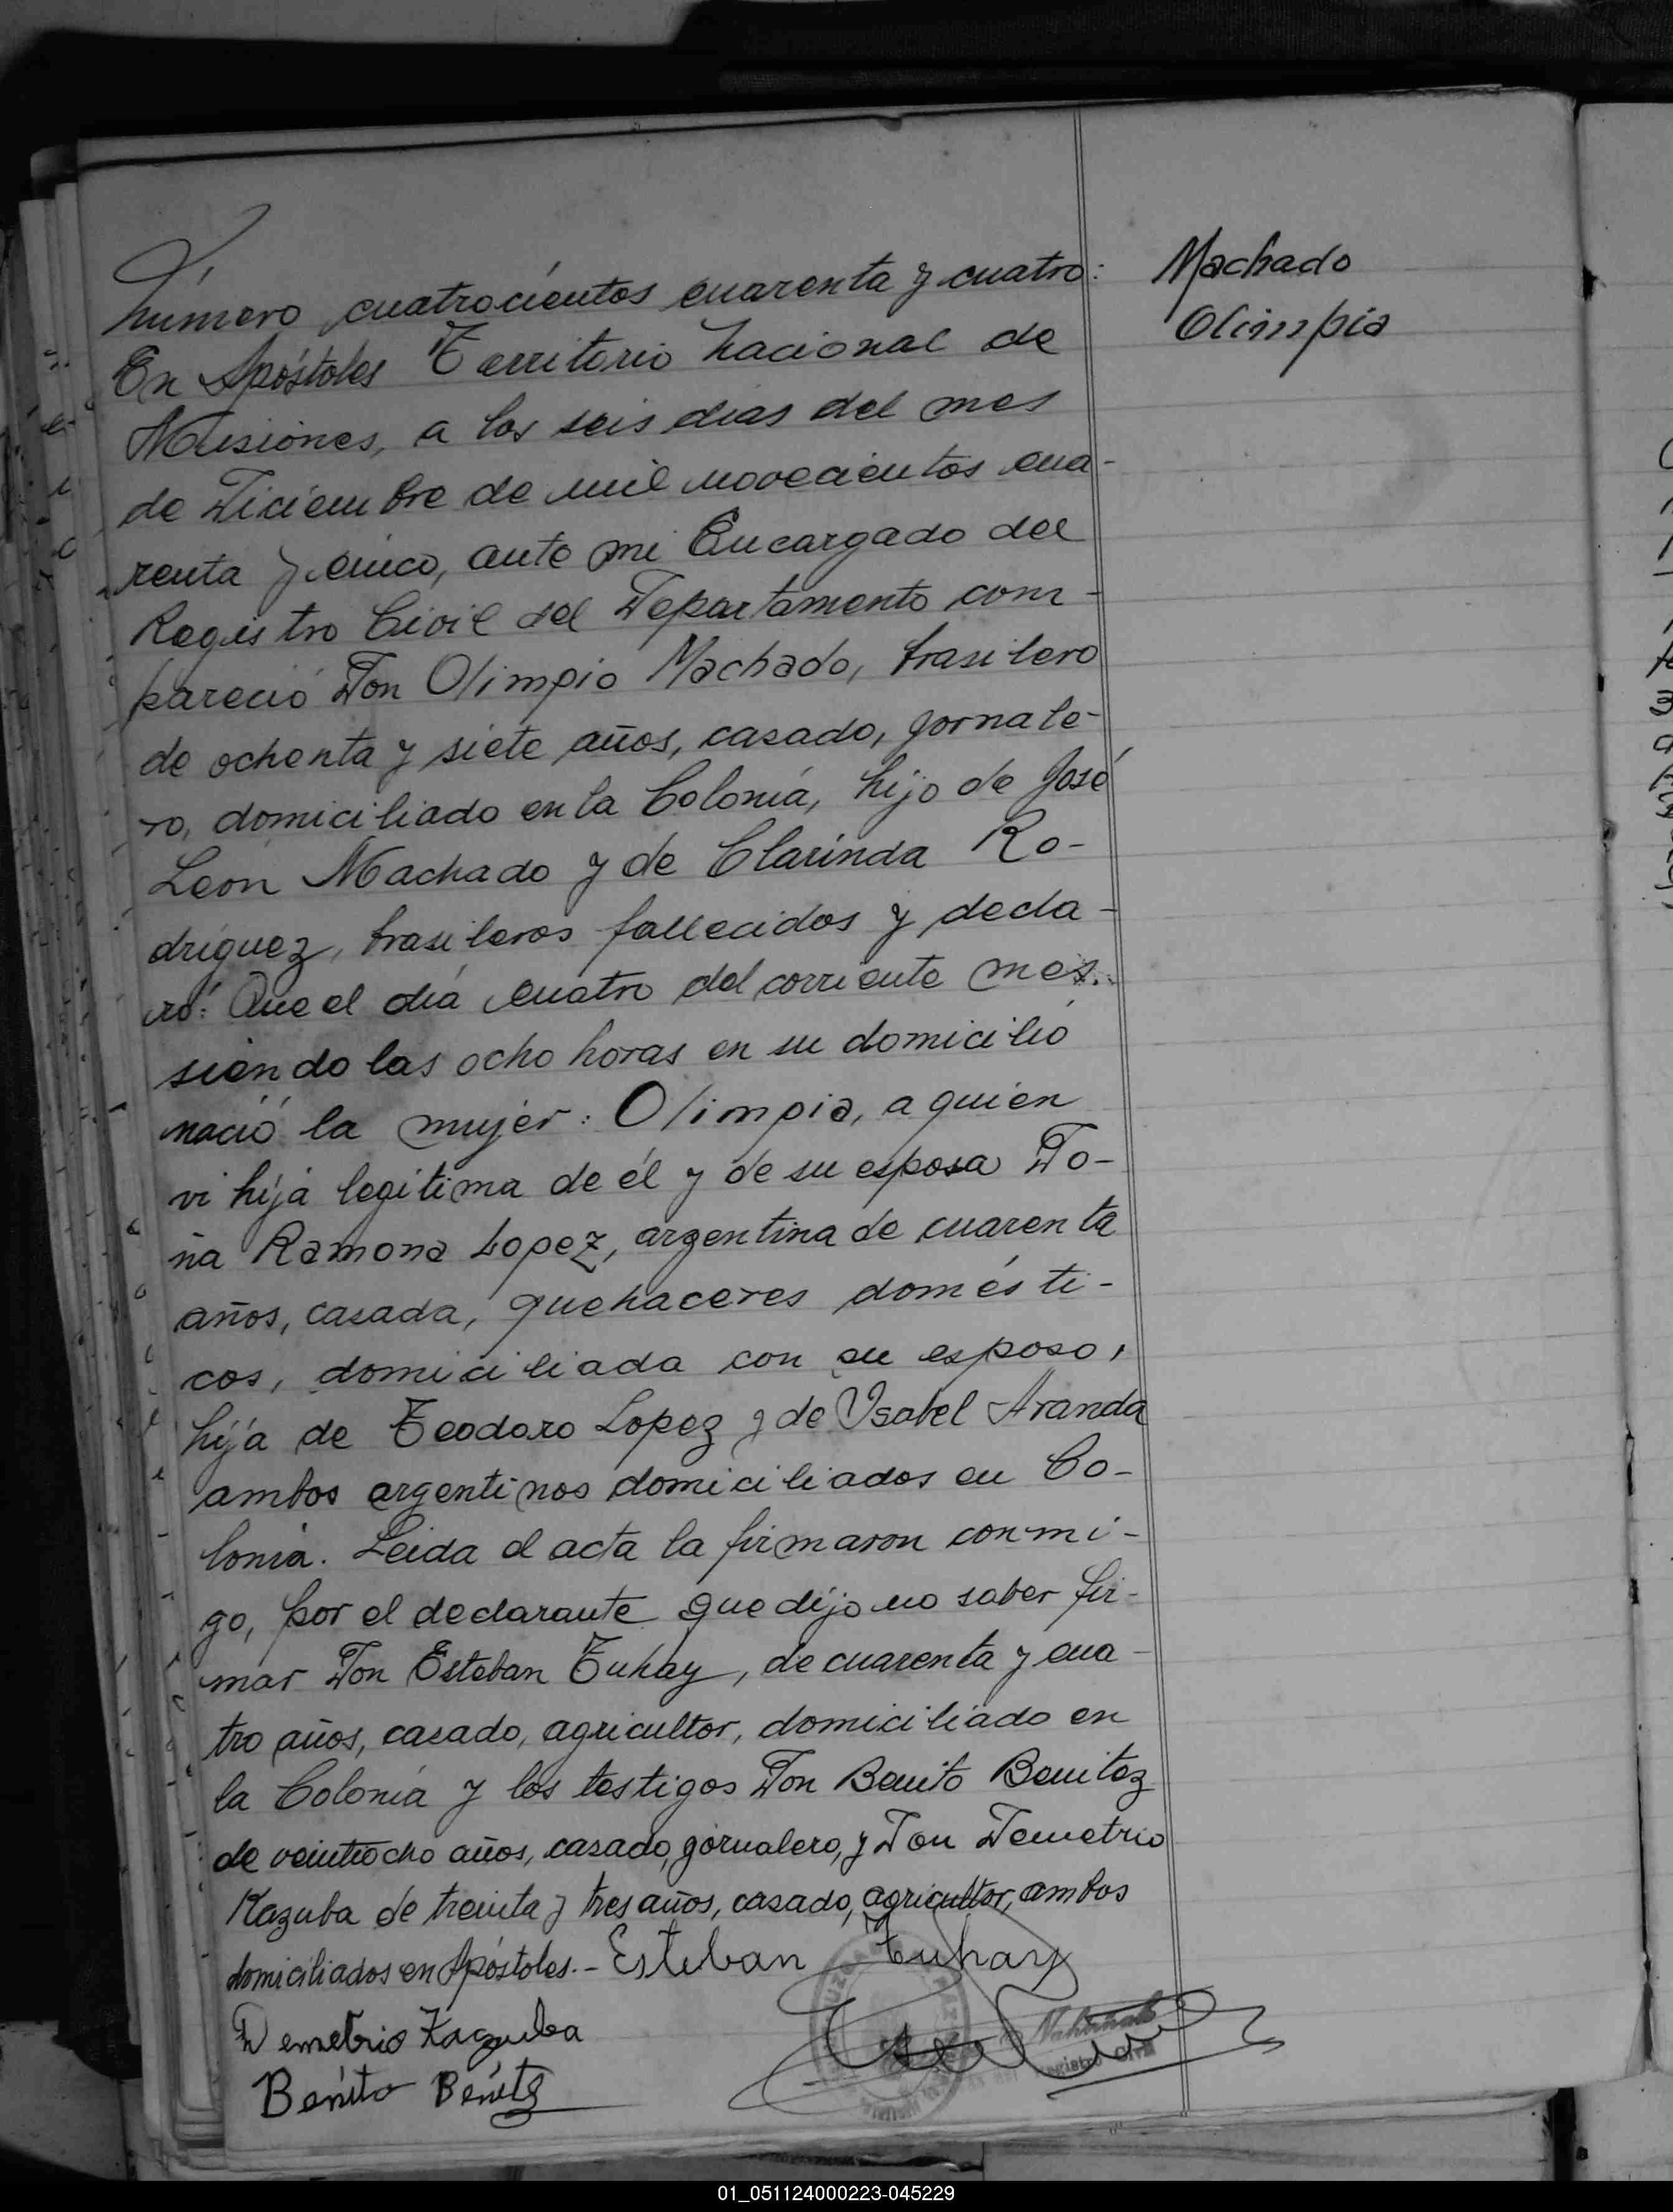 Número cuatrocientos cuarenta y cuatro:
En Apóstoles Territorio Nacional de
Misiones, a los seis dias del mes
de Diciembre de mil novecientos cua-
renta y cinco, ante mi Encargado del
Registro Civil del Departamento com-
pareció Don Olimpio Machado, brasilero
de ochenta y siete años, casado, jornale-
ro, domiciliado en la Colonia, hijo de José
Leon Machado y de Clarinda Ro-
driguez, brasileros fallecidos y decla-
ró: Que el día cuatro del corriente mes.
siendo las ocho horas en su domicilio
nació la mujer: Olimpia, a quien
vi hija legitima de él y de su esposa Do-
ña Ramona Lopez, argentina de cuarenta
años, casada, quehaceres domésti-
cos, domiciliada con su esposo,
hija de Teodoro Lopez y de Isabel Aranda
ambos argentinos domiciliados en Co-
lonia. Leida el acta la firmaron conmi-
go, por el declarante que dijo no saber fir-
mar Don Esteban Tuhay, de cuarenta y cua-
tro años, casado, agricultor, domiciliado en
la Colonia y los testigos Don Benito Benitez
de veintiocho años, casado, jornalero, y Don Demetrio
Kazuba de treinta y tres años, casado, agricultor, ambos
domiciliados en Apóstoles.- Esteban Tuhay
Demetrio Kazuba
Benito Benitez
Machado
Olimpia
Registro Civil
01_051124000223-045229